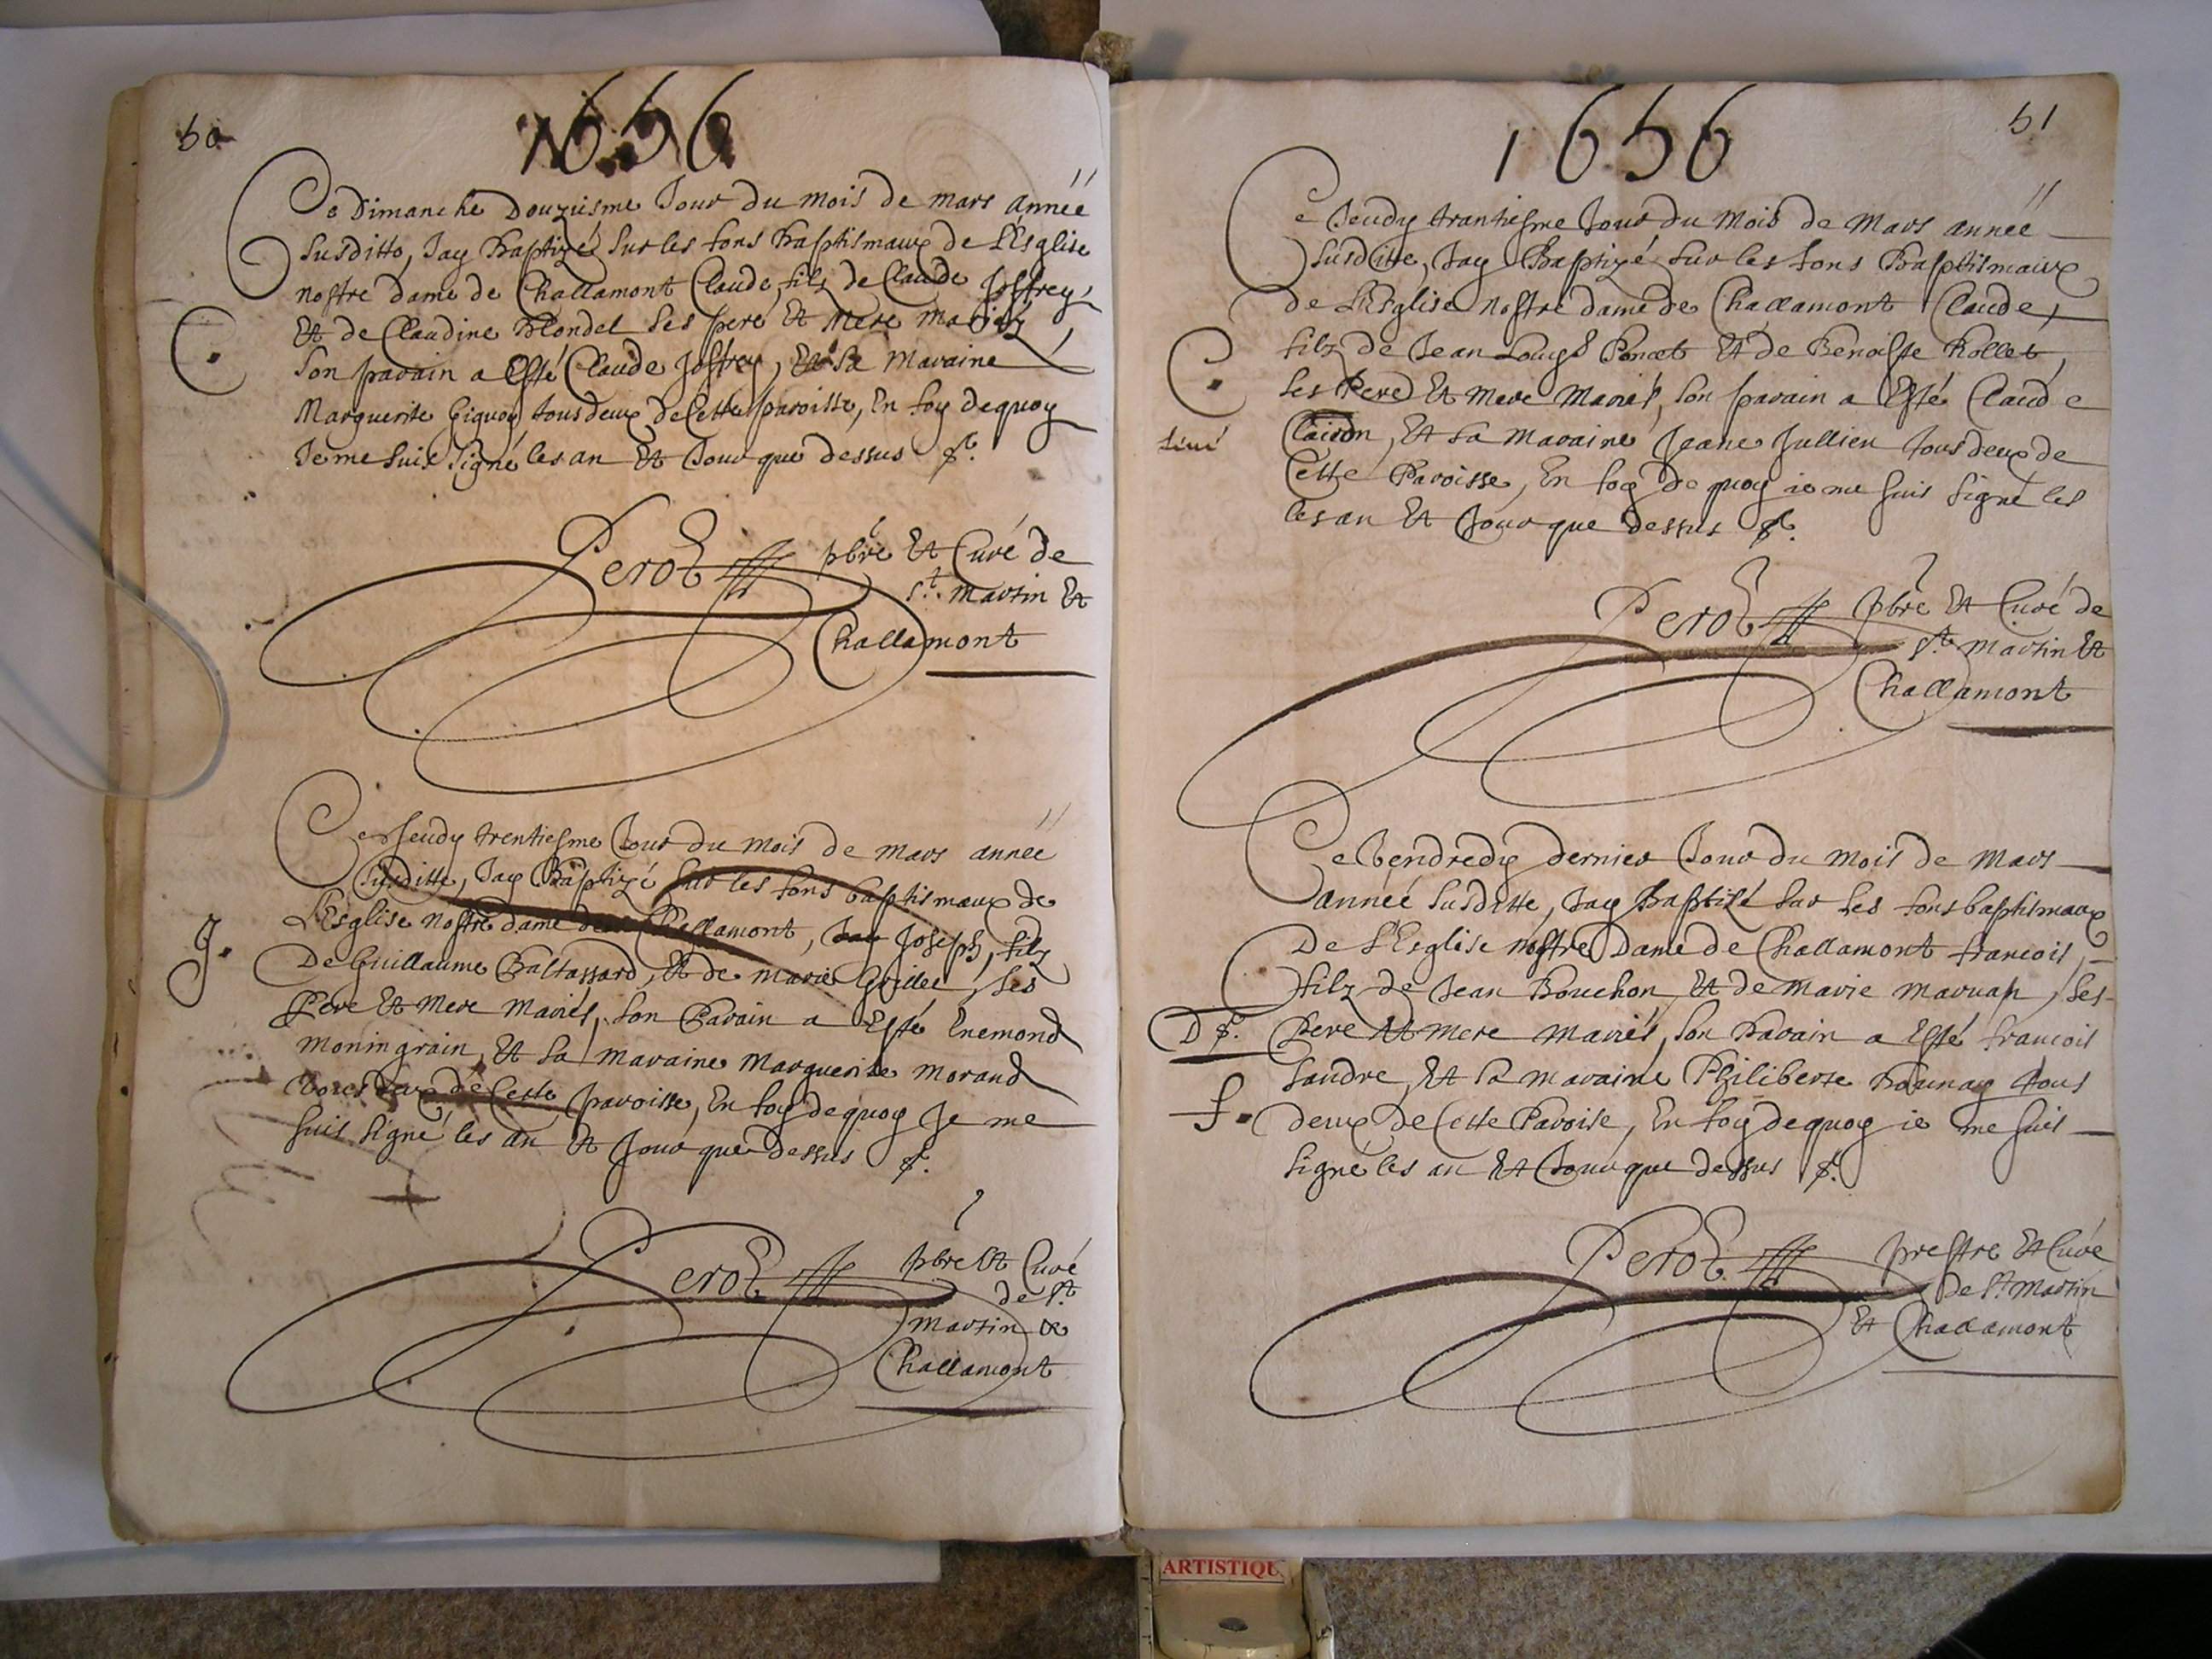 50
1656
Ce Dimanche Douziesme Jour du mois de mars année
susditto, Jay Baptizé sur les fons Baptismaux de L'Esglise
nostre dame de Challamont Claude, filz de Claude Joffrey,
Et de Claudine Blondel ses pere Et Mere mariez
C.
son parain a Esté Claude Joffrey, Et sa Maraine
Marguerite Giguoy tous deux de Cette paroisse, En foy dequoy
Je me suis signé les an Et Jour que dessus
Perot pbre Et Curé de
St. Martin Et
Challamont
Ce Jeudy trentiesme Jour du mois de mars année
susditte, Jay Baptizé sur les fons baptismaux de
L'Esglise nostre dame de Challamont, Joseph, filz
J.
De Guillaume Baltassard, Et de Marie Grillet, ses
Pere Et Mere Mariés, son Parain a Esté Enemond
moningrain, Et sa maraine Marguerite Morand
tous deux de Cette paroisse, En foy dequoy Je me
suis signé les an Et Jour que dessus
Perot pbre Et Curé
de St
martin &
Challamont
51
1656
Ce Jeudy trantiesme Jour du Mois de Mars année
susditte, Jay Baptizé sur les fons Baptismaux
de L'Esglise Nostre dame de Challamont Claude,
filz de Jean Louys Poncet Et de Benoiste Rollet,
C.
ses Pere Et Mere Mariés, son parain a Esté Claude
Clairon, Et sa Maraine Jeane Jullien tous deux de
Cette Paroisse, En foy de quoy ie me suis signé les
les an Et Jour que dessus
Perot pbre Et Curé de
St martin Et
Challamont
Ce Vendredy dernier Jour du mois de Mars
année susditte, Jay Baptisé sur les fons baptismaux
De L'Esglise Nostre Dame de Challamont francois,
filz de Jean Bouchon Et de Marie , ses
D
Pere Et Mere Mariés, son Parain a Esté francois
Sandre, Et sa Maraine Philiberte Baunay tous
f.
deux de Cette Paroise, En foy de quoy ie me suis
signé les an Et Jour que dessus
Perot prestre Et Curé
De St Martin
Et Challamont
ARTISTIQU